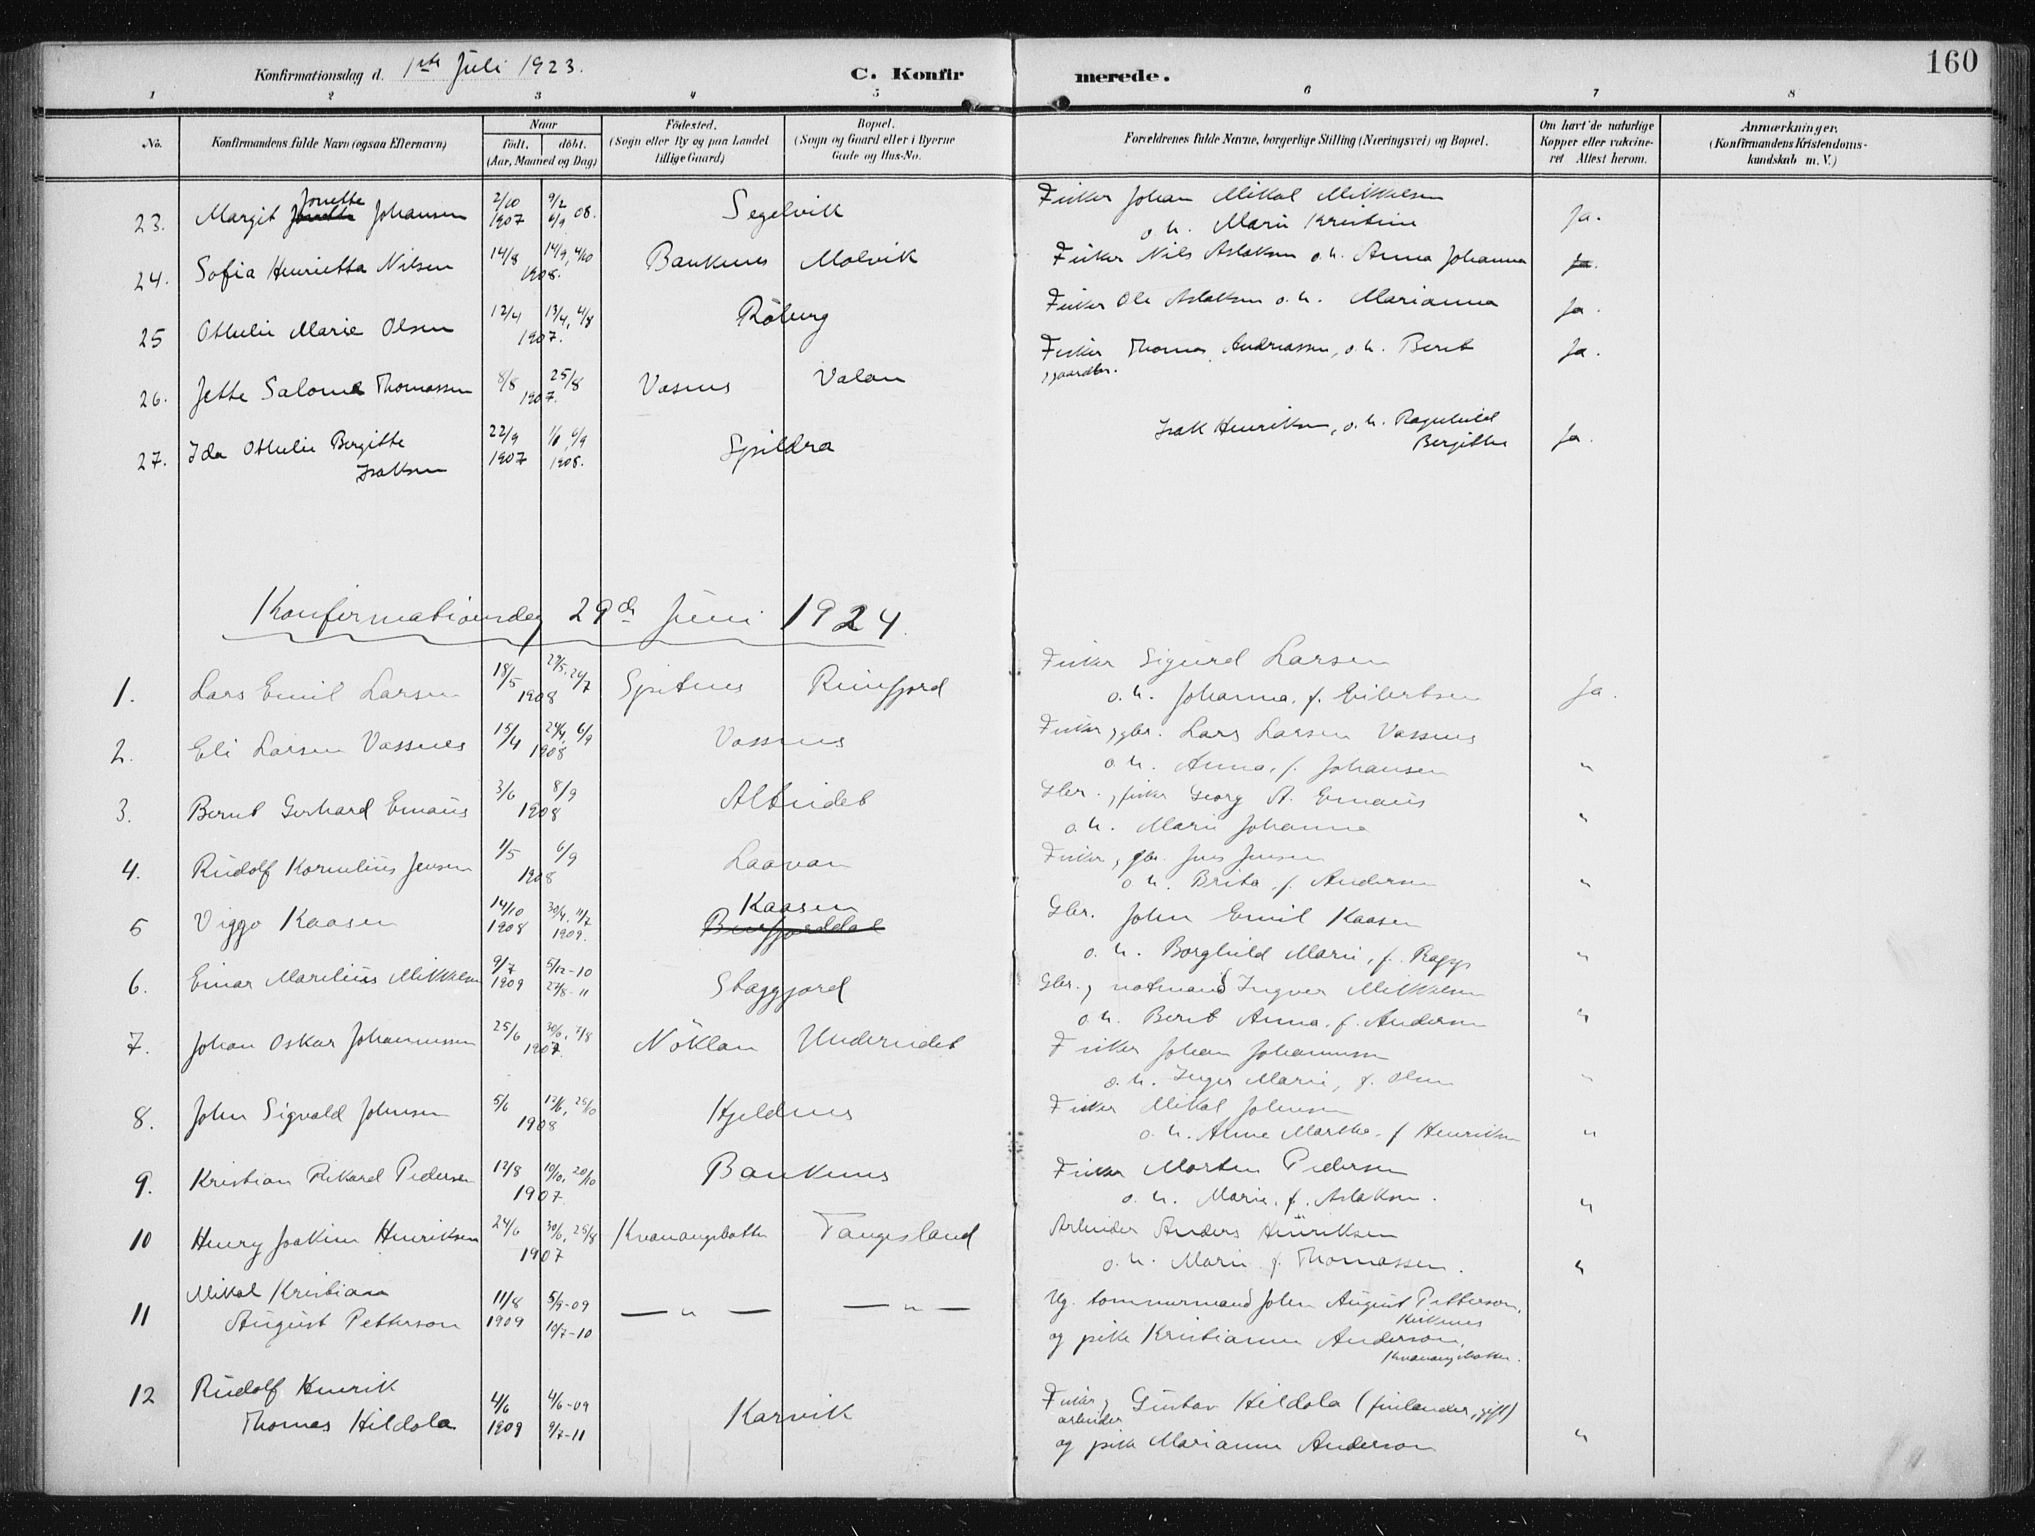 Konfirmationsdag d. 1ste Juli 1923. C. Konfirmerede. 160
1 2 3 4 5 6 7 8
No. Konfirmandens fulde Navn (ogsaa Efternavn) Naar födt. döbt. (Aar, Maaned og Dag)
Födested. (Sogn eller By og paa Landet tillige Gaard)
Bopæl. (Sogn og Gaard eller i Byerne Gade og Hus-No.
Forældrenes fulde Navne, borgerlige Stilling (Næringsvei) og Bopæl.
Om havt de naturlige Kopper eller vakcineret Attest herom.
Anmærkninger. (Konfirmandens Kristendomskundskab m. V.)
23. Margit Jonette Johansen 2/10 1907 9/2 6/9 08. Segelvik Fisker Johan Mikal Mikkelsen
o. h. Marie Kristine Ja.
24. Sofia Henrietta Nilsen 14/8 14/9, 4/10 1908. Baukenes Molvik Fisker Nils Aslaksen o. h. Anna Johanna Ja.
25 Othelie Marie Olsen 12/4 13/4, 4/8 1907. Röberg Fisker Ole Aslaksen o. h. Marianna Ja.
26. Jette Salome Thomassen 8/8 25/8 1907. Vasnes Valan Fisker Thomas Andreassen, o. h. Berit Ja.
, gaardbr.
27. Ida Othelie Bergitte 22/9 1907 6/9 1908. Spildra Isak Henriksen, o. h. Ragnhild
Isaksen Bergitte Ja
Konfirmationsdag 29de Juni 1924.
1. Lars Emil Larsen 18/5 29/5, 24/7 1908 Spitnes Reinfjord Fisker Sigurd Larsen
o. h. Johanna, f. Eilertsen Ja.
2. Eli Larsen Vassnes 15/4 24/4, 6/9 1908 Vassnes Fisker, gbr. Lars Larsen Vassnes
o. h. Anna, f. Johansen "
3. Bernt Gerhard Emaus 3/6 8/9 1908 Alteidet Gbr., fisker Georg A. Emaus
o. h. Marie Johanna "
4. Rudolf Kornelius Jensen 1/5 6/9 1908 Laavan Fisker, gbr. Jens Jensen
o. h. Brita, f. Andersen "
5 Viggo Kaasen 14/10 1908 30/4, 11/7 1909. Kaasen
Burfjorddal Gbr. John Emil Kaasen
o. h. Borghild Marie, f. Rapp "
6. Einar Marelius Mikkelsen 9/7 1909 5/12-10 27/8-11 Staggjord Gbr., notmand Ingver Mikkelsen
o. h. Berit Anna, f. Andersen "
7. Johan Oskar Johannessen 25/6 30/6, 4/8 1907. Nöklan Undereidet Fisker Johan Johannessen
o. h. Inger Marie, f. Olsen "
8. John Sigvald Johnsen 5/6 12/6, 25/10 1908 Hjeldnes Fisker Mikal Johnsen
o. h. Anne Martha, f Henriksen "
9. Kristian Rikard Pedersen 12/8 10/10, 20/10 1907 Baukenes Fisker Morten Pedersen
o. h. Marie, f. Aslaksen. "
10 Henry Joakim Henriksen 24/6 30/6, 25/8 1907 Kvænangsbotten Tangesland Arbeider Anders Henriksen
o. h. Marie f. Thomassen. "
11 Mikal Kristian 11/8 1909 5/9-09 10/7-10 — " — — " — Ug. tømmermand John August Petterson,
August Petterson Kirknes
og pike Kristianne Anderson,
Kvænangsbotten.
12 Rudolf Henrik 4/6 1909 4/6-09 9/7-11 Karvik Fisker, Gustav Hildola (finlænder, gift)
Thomas Hildola arbeider
og pike Marianne Anderson "